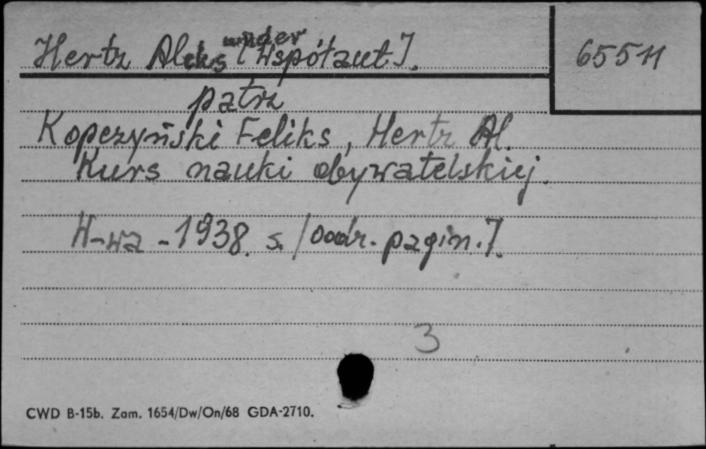 Hertz Aleksander [Współaut].
65511
patrz
Kopczyński Feliks, Hertz Al.
Kurs nauki obywatelskiej.
W-wa - 1938. s. [oddr. pagin.].
3
CWD B-15b. Zam. 1654/Dw/On/68 GDA-2710.